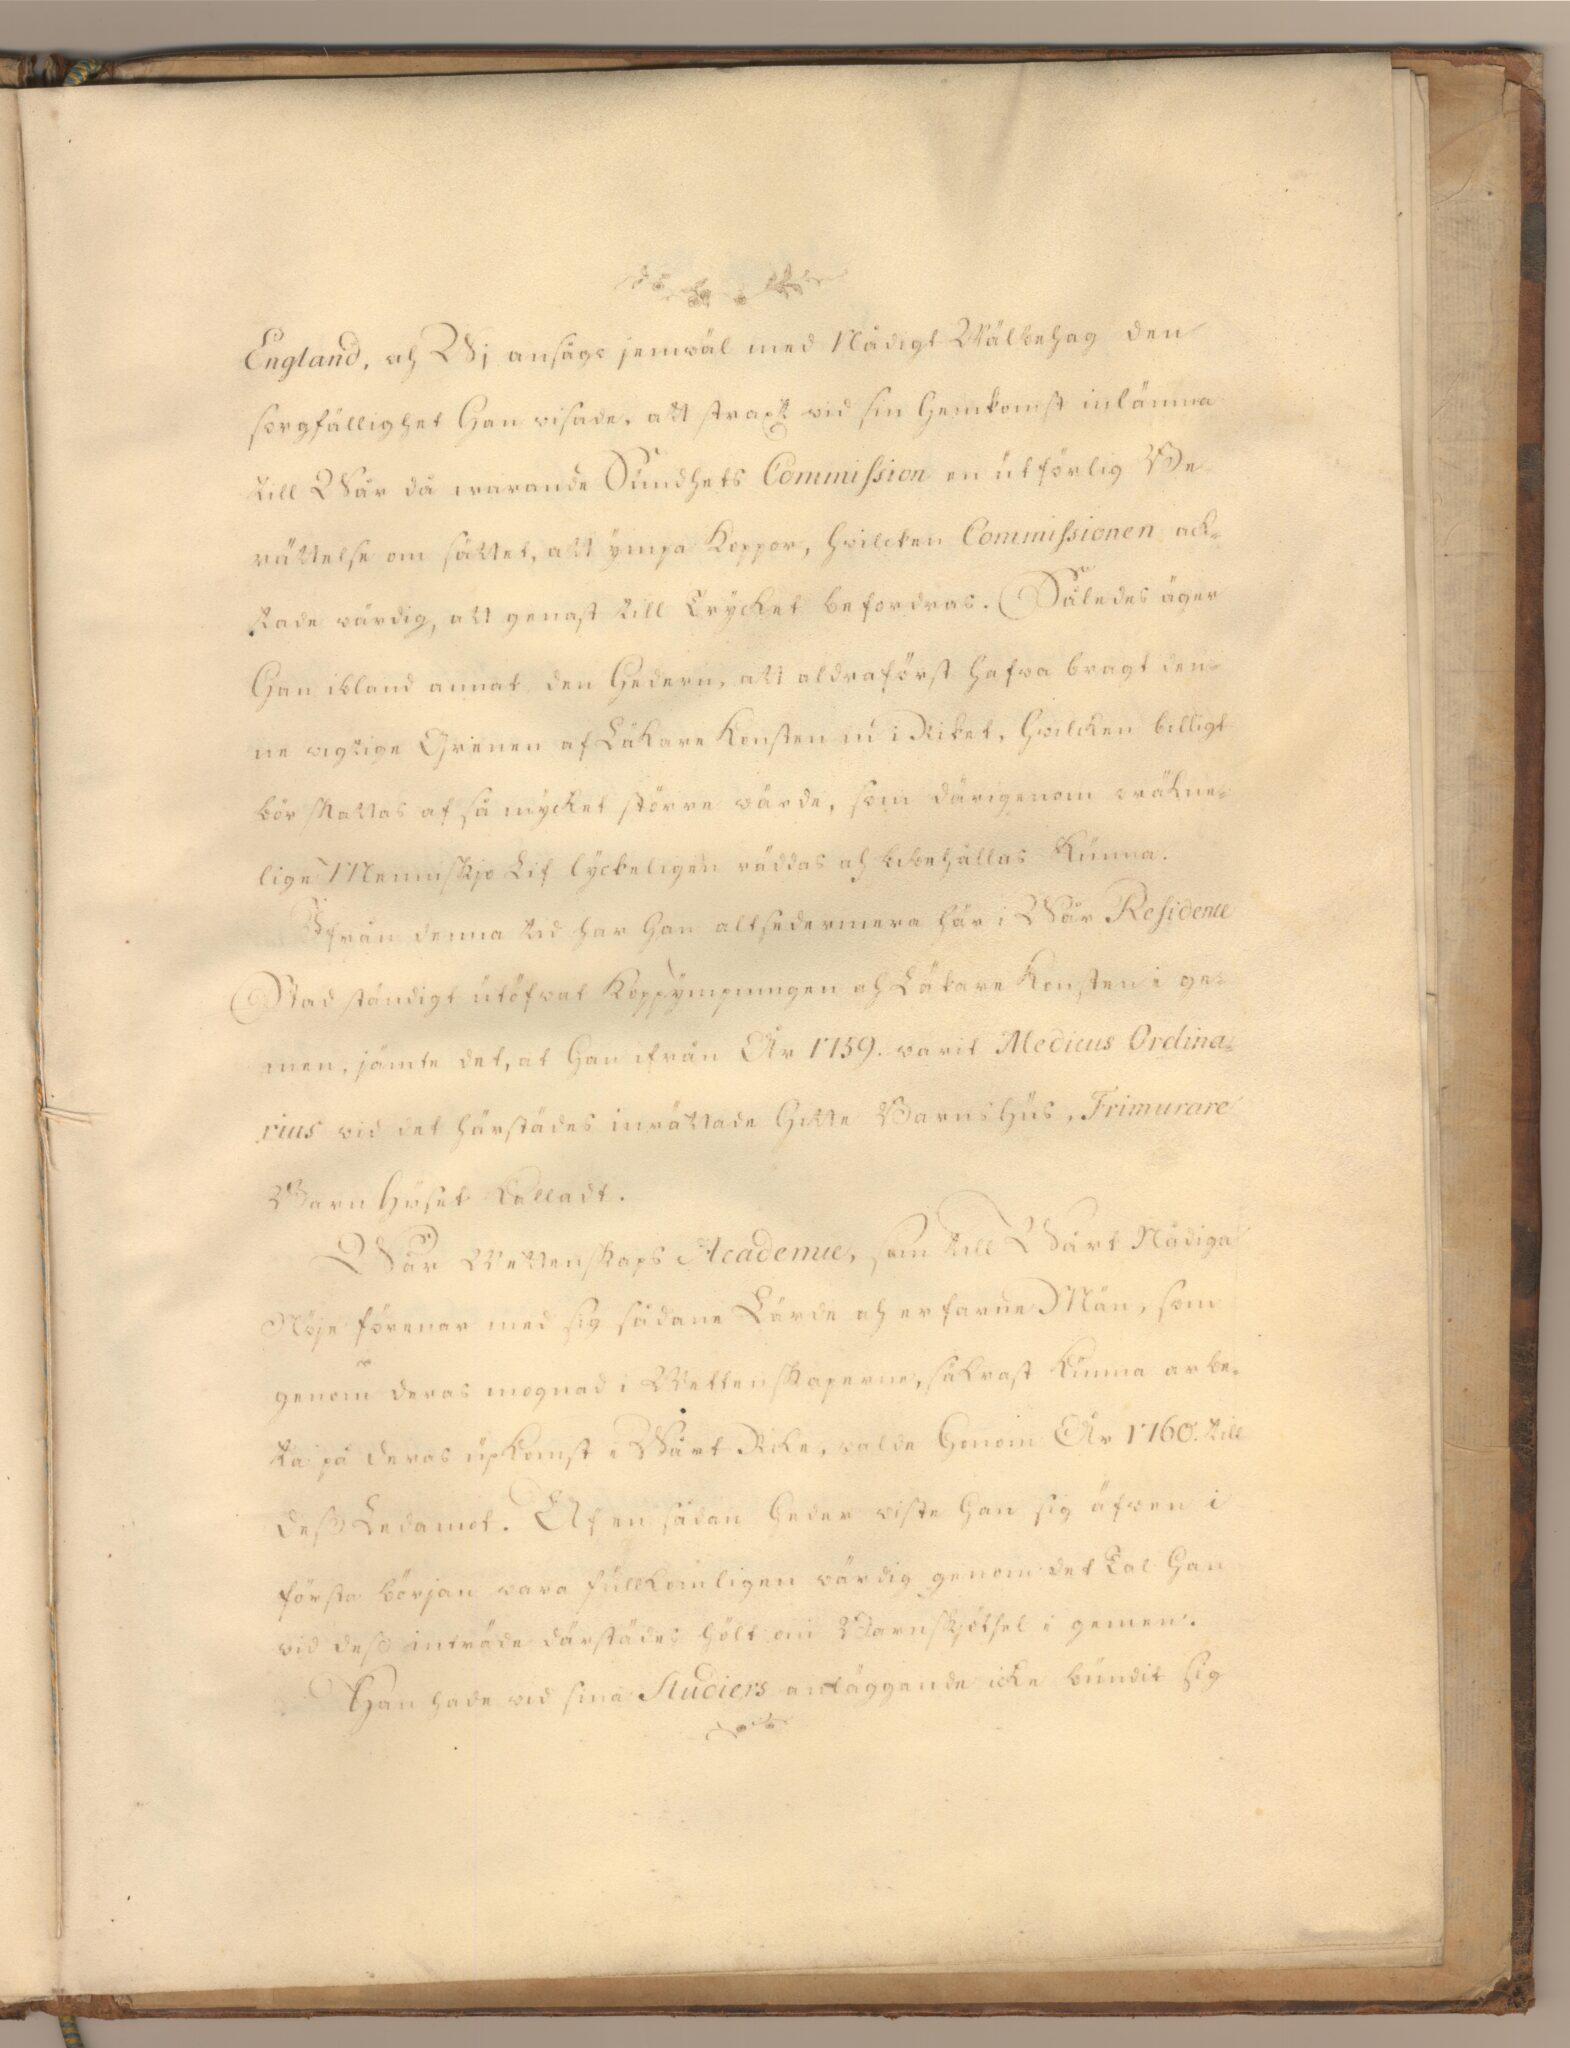 England, och Wj ansågo jemwäl med Nådigt Wälbehag den
sorgfällighet Han wisade, att straxt wid sin Hemkomst inlämna
till Wår då warande Sundhets Commission en utförlig Be
rättelse om sättet, att ympa Koppor, hwilcken Commissionen ack-
tade wärdig, att genast till Trycket befordras. Således äger
Han ibland annat den Hedern, att aldraförst hafwa bragt den-
ne wigtige Grenen af Läkare Konsten in i Riket, hwilcken billigt
bör skattas af så mycket större wärde, som därigenom oräkne-
lige Menniskjo Lif lyckeligen räddas och bibehållas kunna.
Ifrån denna tid har Han altsedermera här i Wår Residence
Stad ständigt utöfwat Koppympningen och Läkare Konsten i ge-
men, jämte det, at Han ifrån År 1759. warit Medicus Ordina-
rius wid det härstädes inrättade Hitte Barnshus, Frimurare
Barnhuset kalladt.
Wår Wettenskaps Academie, som till Wårt Nådiga
Nöje förenar med sig sådane Lärde och erfarne Män, som
genom deras mognad i Wettenskaperne, säkrast kunna arbe-
ta på deras upkomst i Wårt Rike, walde Honom År 1760. till
dess Ledamot. Af en sådan Heder wiste Han sig äfwen i
första början wara fullkomligen wärdig genom det Tal Han
wid dess inträde därstädes hölt om Barnskjötsel i gemen.
Han hade wid sina Studiers anläggande icke bundit sig